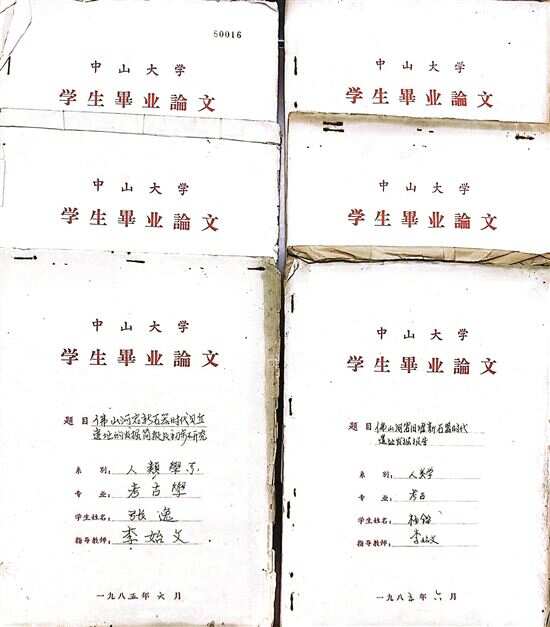 50016
中山大学
学生畢业論文
中山大学
学生畢业論文
中山大学
学生畢业論文
中山大学
学生畢业論文
中山大学
学生畢业論文
题目 佛山河宕新石器时代贝丘
遗址的发掘简报及初步研究
系别: 人類學系
专业: 考古學
学生姓名: 张逸
指导教师: 李始文
一九八五年六月
中山大学
学生畢业論文
题目 佛山河宕旧墟新石器时代
遗址发掘报告
系别: 人类学
专业: 考古
学生姓名:
指导教师: 李始文
一九八五年六月